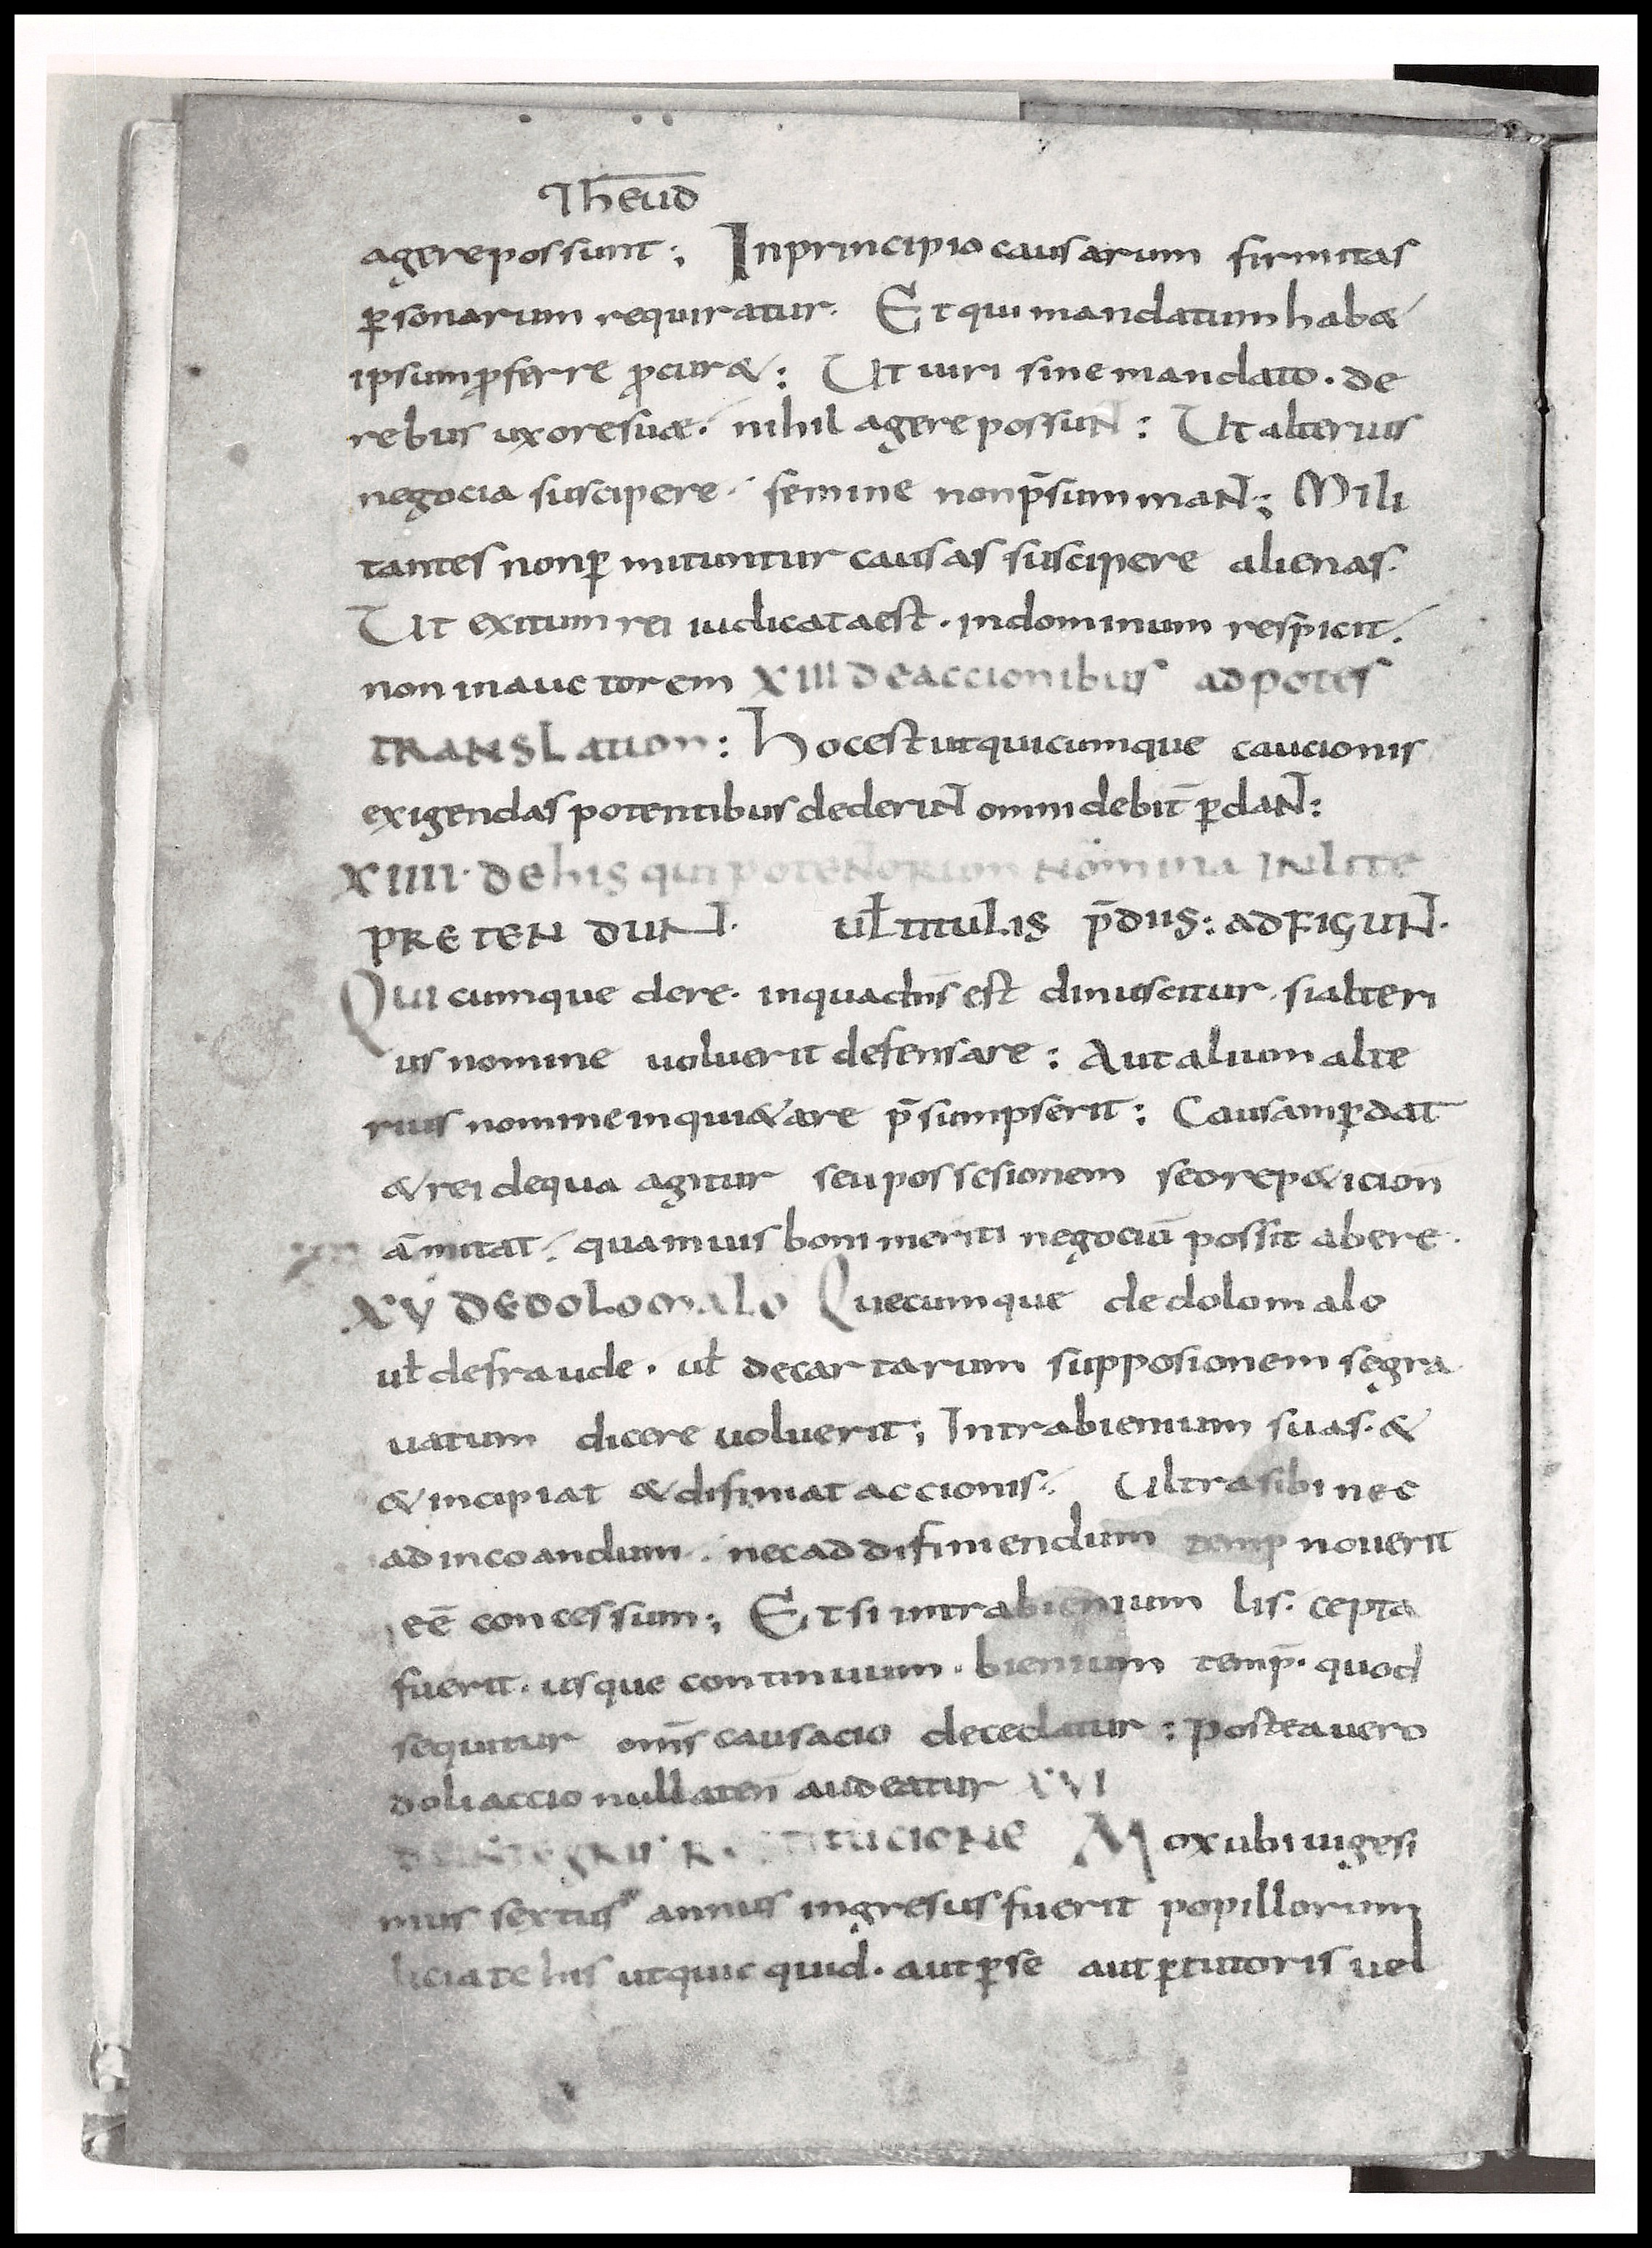 Theuð
agere possunt; In principio causarum firmitas
p̄sonarum requiratur. Et qui mandatum habæ
ipsum ꝓferre ꝓcur&: Ut uiri sine mandato. de
rebus uxoresuæ. nihil agere possuNt: Ut alterius
negocia suscipere. femine non p̄summaNt; Mili
tantes non ꝑmituntur causas suscipere alienas.
Ut exitum rei iudicata est. in dominum resp̄icit.
non in auctorem XIII de accionibus ad potes
TRANSLation: Hoc est ut quicumque caucionis
exigendas potentibus dederiNt omni debit̄ ꝑdaNt:
XIIII. De his qui poteNtorion Nomina IN Lite
PRETENDUNt. uł tituLis p̄dus: adfigUNt.
Quicumque de re. in qua dn̄s est dinuscitur. si alteri
us nomine uoluerit defensare: Aut alium alte
rius nomine inqui&are p̄sumpserit: Causam ꝑdat
& rei de qua agitur seu possesionem seo rep&icion̄
āmitat. quamuis boni meriti negociū possit abere.
XV DE DOLO MALO Quecumque de dolo malo
uł de fraude. uł de cartarum supposionem se gra
uatum dicere uoluerit; Intra bienium suas. &
& incipiat & difiniat accionis. Ultra sibi nec
ad incoandum. nec ad difiniendum temp nouerit
eē concessum; Et si intra bienium lis. cepta
fuerit. usque continuum. bienium temp̄. quod
sequitur om̄s causacio decedatur: postea uero
doli accio nullaten̄ audeatur XVI
RestitucioNe Mox ubi uigesi
mus sextus annus ingresus fuerit popillorum
liciat eius ut quic quid. aut ꝑ se aut ꝑ tutoris uel